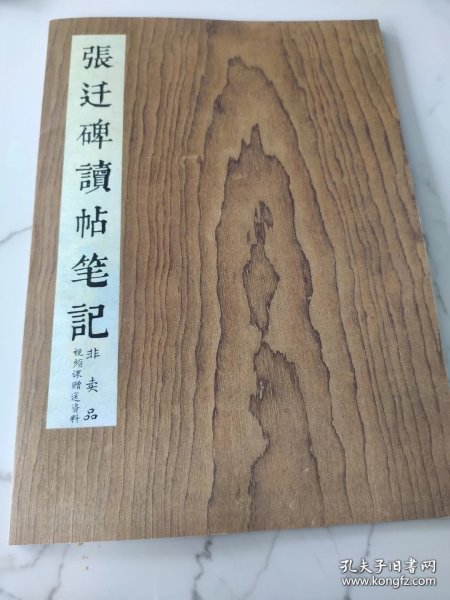 張迁碑讀帖笔記
非卖品
视频课赠送資料
孔夫子旧书网
www.kongfz.com